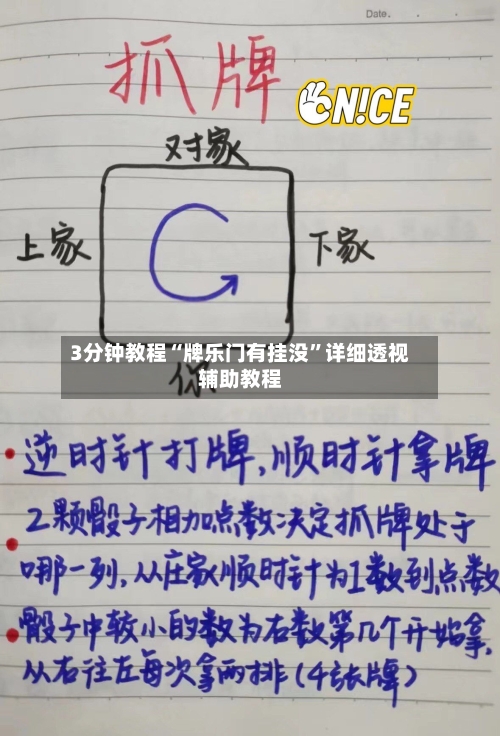 Date.
抓牌
NICE
对家
上家
下家
3分钟教程“牌乐门有挂没”详细透视
辅助教程
你
逆时针打牌,顺时针拿牌
2颗骰子相加点数决定抓牌处于
哪一列,从庄家顺时针为1数到点数
骰子中较小的数为右数第几个开始拿,
从右往左每次拿两排(4张牌)